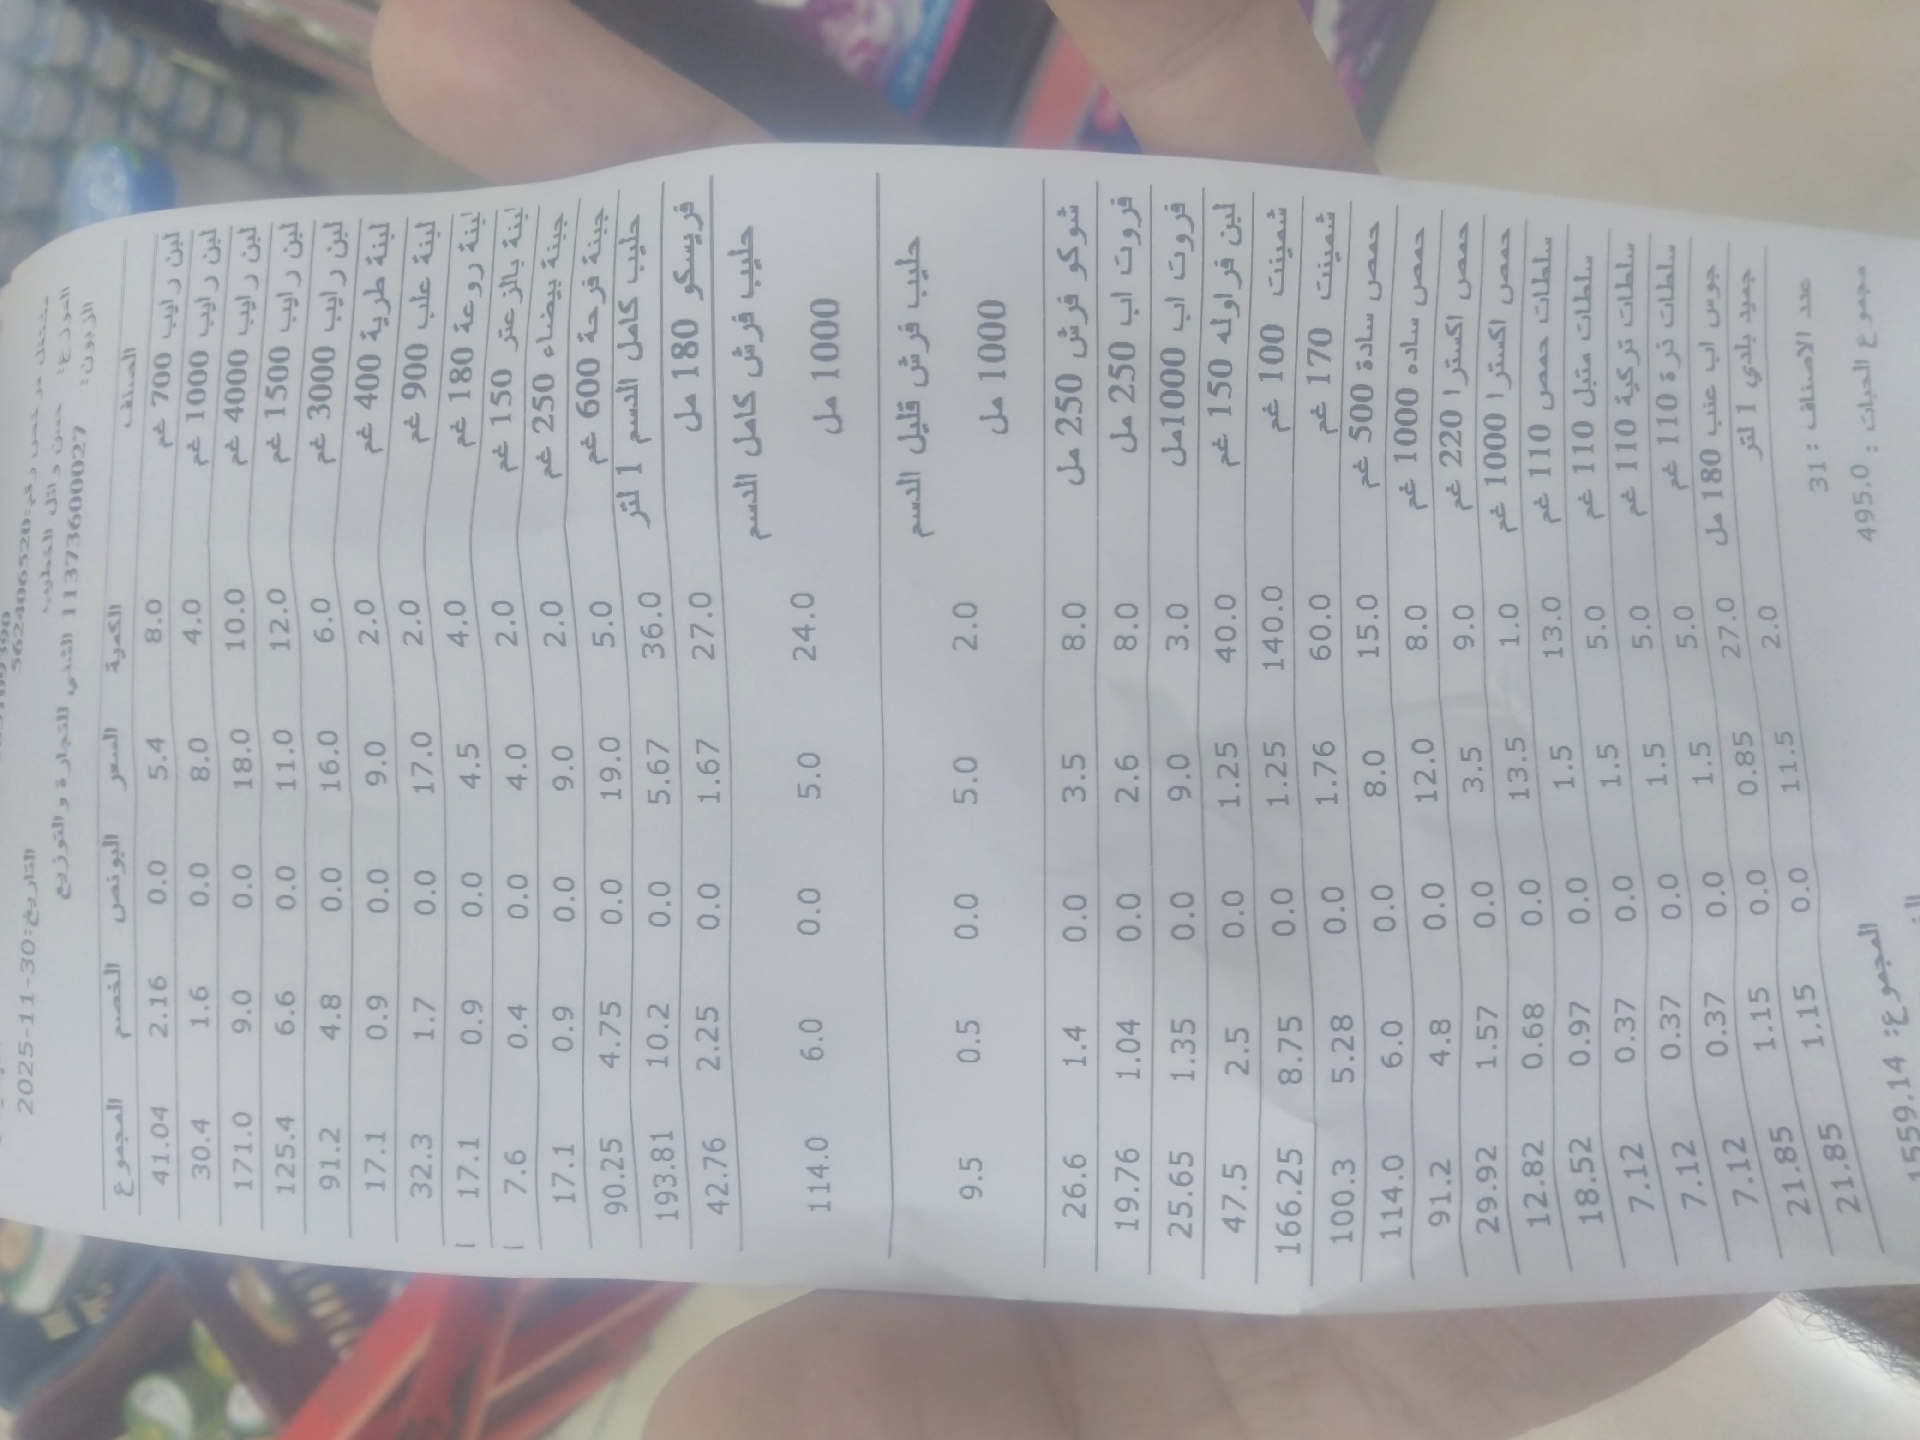 562406520
التاريخ:30-11-2025
حسن وائل الخطيب
الزبون: 1137360027 الشني للتجارة والتوزيع
الصنف الكمية السعر البونص الخصم المجموع
لبن رايب 700 غم 8.0 5.4 0.0 2.16 41.04
لبن رايب 1000 غم 4.0 8.0 0.0 1.6 30.4
لبن رايب 4000 غم 10.0 18.0 0.0 9.0 171.0
لبن رايب 1500 غم 12.0 11.0 0.0 6.6 125.4
لبن رايب 3000 غم 6.0 16.0 0.0 4.8 91.2
لبنة طرية 400 غم 2.0 9.0 0.0 0.9 17.1
لبنة علب 900 غم 2.0 17.0 0.0 1.7 32.3
لبنة روعة 180 غم 4.0 4.5 0.0 0.9 17.1
لبنة بالزعتر 150 غم 2.0 4.0 0.0 0.4 7.6
جبنة بيضاء 250 غم 2.0 9.0 0.0 0.9 17.1
جبنة فرحة 600 غم 5.0 19.0 0.0 4.75 90.25
حليب كامل الدسم 1 لتر 36.0 5.67 0.0 10.2 193.81
فريسكو 180 مل 27.0 1.67 0.0 2.25 42.76
حليب فرش كامل الدسم
1000 مل 24.0 5.0 0.0 6.0 114.0
حليب فرش قليل الدسم
1000 مل 2.0 5.0 0.0 0.5 9.5
شوكو فرش 250 مل 8.0 3.5 0.0 1.4 26.6
فروت اب 250 مل 8.0 2.6 0.0 1.04 19.76
فروت اب 1000مل 3.0 9.0 0.0 1.35 25.65
لبن فراوله 150 غم 40.0 1.25 0.0 2.5 47.5
شمينت 100 غم 140.0 1.25 0.0 8.75 166.25
شمينت 170 غم 60.0 1.76 0.0 5.28 100.3
حمص سادة 500 غم 15.0 8.0 0.0 6.0 114.0
حمص ساده 1000 غم 8.0 12.0 0.0 4.8 91.2
حمص اكسترا 220 غم 9.0 3.5 0.0 1.57 29.92
حمص اكسترا 1000 غم 1.0 13.5 0.0 0.68 12.82
سلطات حمص 110 غم 13.0 1.5 0.0 0.97 18.52
سلطات متبل 110 غم 5.0 1.5 0.0 0.37 7.12
سلطات تركية 110 غم 5.0 1.5 0.0 0.37 7.12
سلطات ذرة 110 غم 5.0 1.5 0.0 0.37 7.12
جوس اب عنب 180 مل 27.0 0.85 0.0 1.15 21.85
جميد بلدي 1 لتر 2.0 11.5 0.0 1.15 21.85
عدد الاصناف : 31
مجموع الحبات : 495.0
المجموع: 1559.14